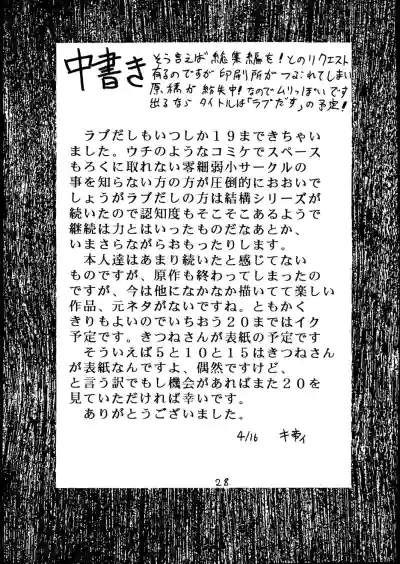 中書き
そう言えば総集編を!とのリクエスト
有るのですが印刷所がつぶれてしまい
原稿が紛失中!なのでムリっぽいです
出るならタイトルは「ラブだす」の予定!
ラブだしもいつしか19まできちゃい
ました。ウチのようなコミケでスペース
もろくに取れない零細弱小サークルの
事を知らない方の方が圧倒的におおいで
しょうがラブだしの方は結構シリーズが
続いたので認知度もそこそこあるようで
継続は力とはいったものだなあとか、
いまさらながらおもったりします。
本人達はあまり続いたと感じてない
ものですが、原作も終わってしまったの
ですが、今は他になかなか描いてて楽しい
作品、元ネタがないですね。ともかく
きりもよいのでいちおう20まではイク
予定です。きつねさんが表紙の予定です
そういえば5と10と15はきつねさん
が表紙なんですよ、偶然ですけど、
と言う訳でもし機会があればまた20を
見ていただければ幸いです。
ありがとうございました。
4/16
28